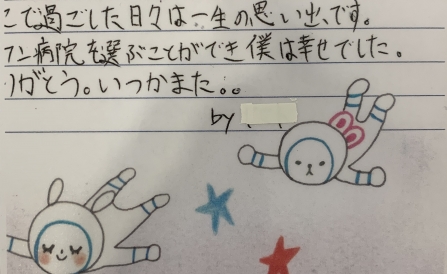 こで過ごした日々は一生の思い出です。
フン病院を選ぶことができ僕は幸せでした。
りがとう。いつかまた。。
by